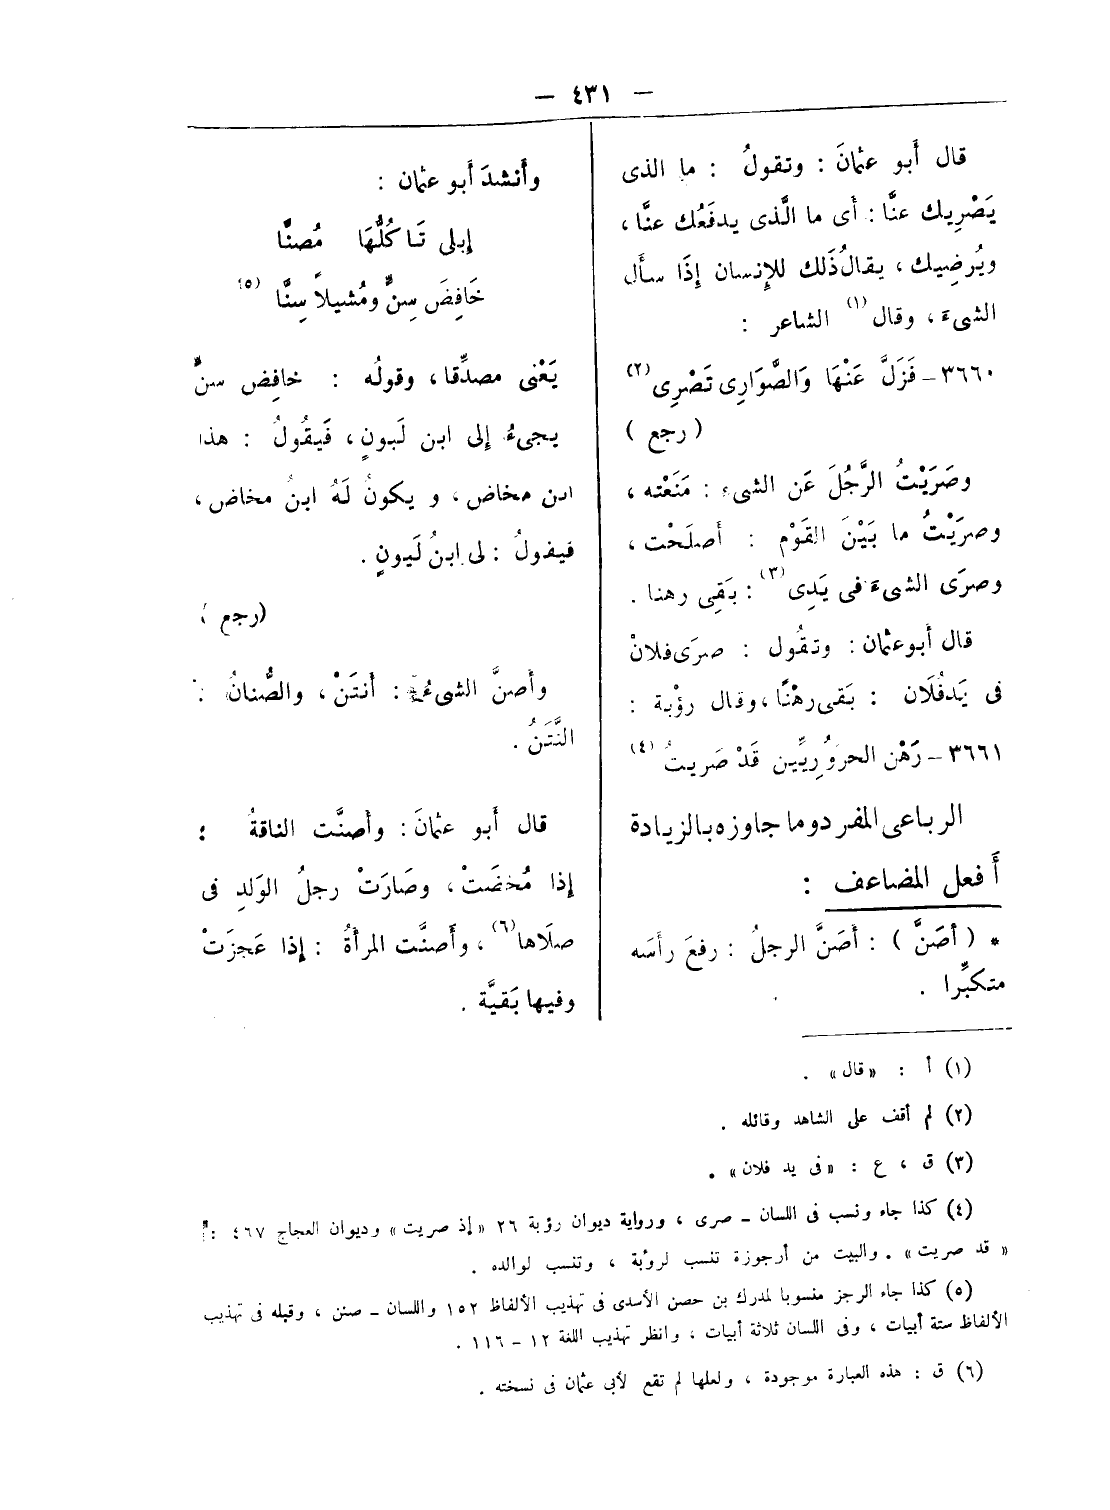 — ٤٣١ —
قال أَبو عثمانَ : وتقولُ : ما الذى
يَصْرِيك عنَّا : أى ما الَّذى يدفَعُك عنَّا ،
ويُرضِيك ، يقالُ ذَلك للإِنسان إِذَا سأَل
الشىءَ ، وقال (١) الشاعر :
٣٦٦٠ – فَزَلَّ عَنْهَا وَالصَّوَارِى تَصْرِى (٢)
( رجع )
وصَرَيْتُ الرَّجُلَ عَن الشىء : مَنَعْته ،
وصرَيْتُ ما بَيْنَ القَوْم : أَصلَحْت ،
وصرَى الشىءَ فى يَدِى (٣) : بَقِى رهنا .
قال أَبو عثمان : وتقُول : صرَى فلانٌ
فى يَدفُلَان : بَقى رهْنًا ، وقال رؤْبة :
٣٦٦١ – رَهْن الحرَوُرِيِّين قَدْ صَريتُ (٤)
الرباعى المفرد وما جاوزه بالزيادة
أَفعل المضاعف :
* ( أَصَنَّ ) : أَصَنَّ الرجلُ : رفعَ رأسَه
متكبِّرا .
وأَنشدَ أَبو عثمان :
إبلى تَاكُلُهَا مُصنًّا
خَافِضَ سِنٍّ ومُشيلاً سِنَّا (٥)
يَعْنى مصدِّقا ، وقولُه : خافِض سنٍّ
يجىءُ إلى ابن لَبونٍ ، فَيقُولُ : هذا
ابن مخاض ، و يكونُ لَهُ ابنُ مخاض ،
فيقولُ : لى ابنُ لَبونٍ .
( رجع )
وأَصنَّ الشىءُ : أَنتَنْ ، والصُّنانُ :
النَّتَنُ .
قال أَبو عثمانَ : وأَصنَّت الناقةُ :
إذا مُخضَتْ ، وصَارَتْ رجلُ الوَلدِ فى
صلَاها (٦) ، وأَصنَّت المرأَةُ : إذا عَجزَتْ
وفيها بَقيَّة .
(١) أ : « قال » .
(٢) لم أقف على الشاهد وقائله .
(٣) ق ، ع : « فى يد فلان » .
(٤) كذا جاء ونسب فى اللسان – صرى ، ورواية ديوان رؤبة ٢٦ « إذ صريت » وديوان العجاج ٤٦٧ :
« قد صريت » . والبيت من أرجوزة تنسب لرؤبة ، وتنسب لوالده .
(٥) كذا جاء الرجز منسوبا لمدرك بن حصن الأسدى فى تهذيب الألفاظ ١٥٢ واللسان – صنن ، وقبله فى تهذيب
الألفاظ ستة أبيات ، وفى اللسان ثلاثة أبيات ، وانظر تهذيب اللغة ١٢ – ١١٦ .
(٦) ق : هذه العبارة موجودة ، ولعلها لم تقع لأبى عثمان فى نسخته .